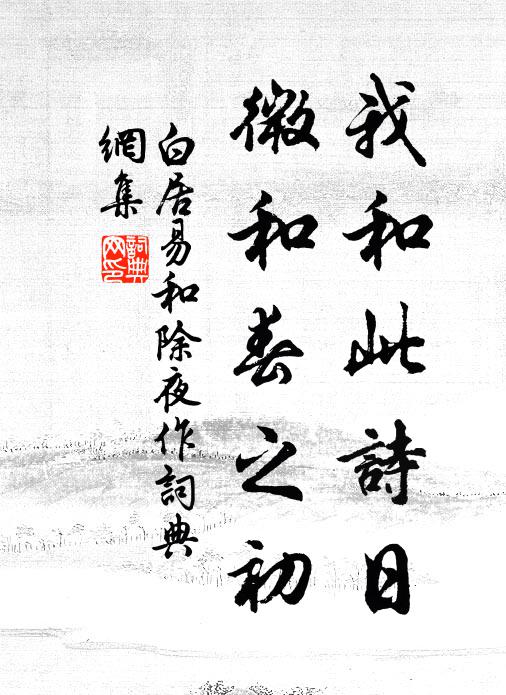 我和此詩日
微和春之初
白居易和除夜作詞典
網集
詞典
网印